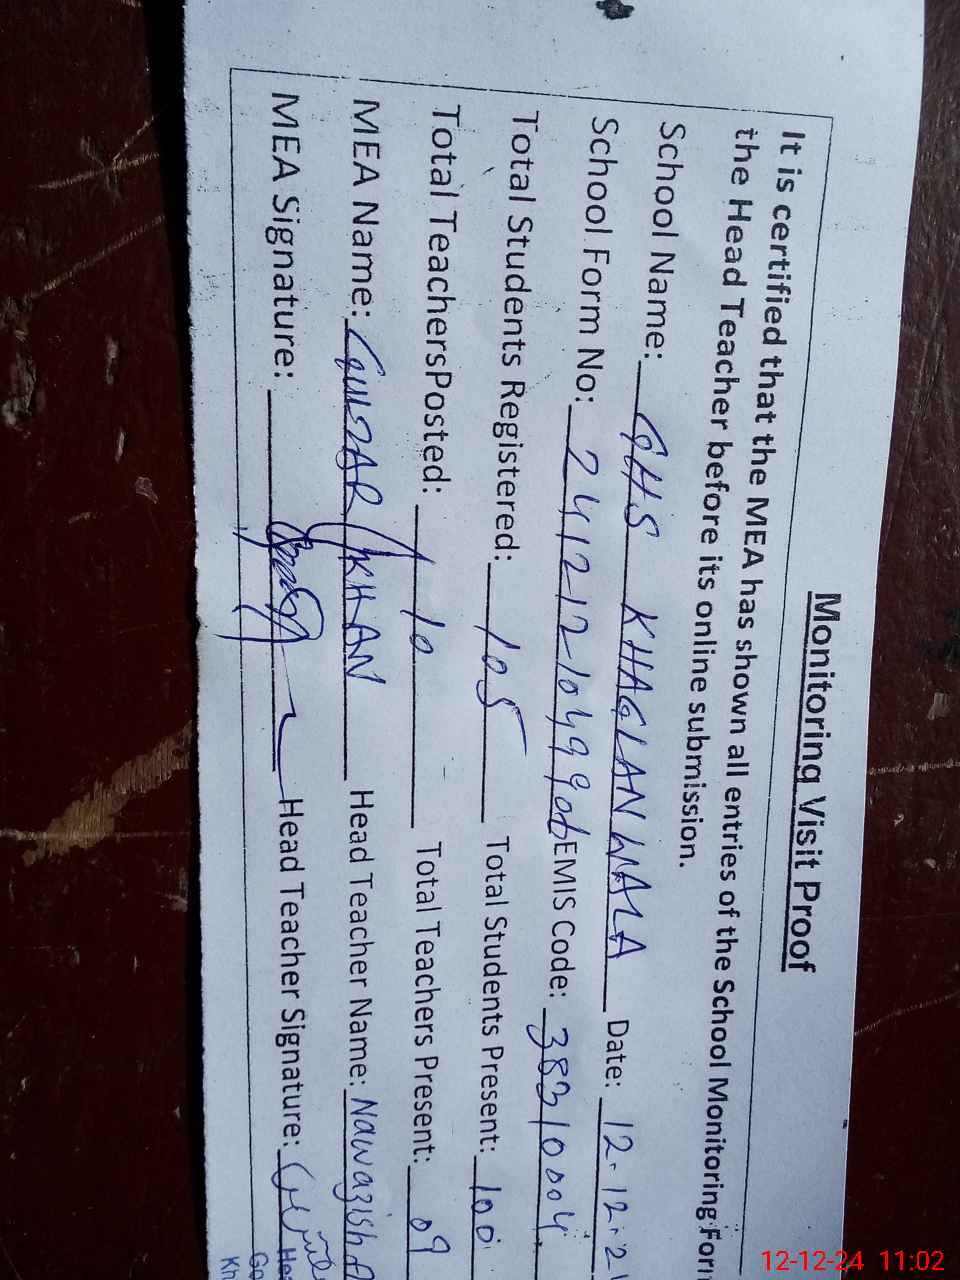 Monitoring Visit Proof
It is certified that the MEA has shown all entries of the School Monitoring Form
the Head Teacher before its online submission.
School Name: GHS KHAGLANWALA Date: 12-12-2
School Form No: 241212104990 EMIS Code: 38310004
Total Students Registered: 105 Total Students Present: 100
Total TeachersPosted: 10 Total Teachers Present: 09
MEA Name: GULZAR KHAN Head Teacher Name: Nawazish A
MEA Signature: Head Teacher Signature:
12-12-24 11:02